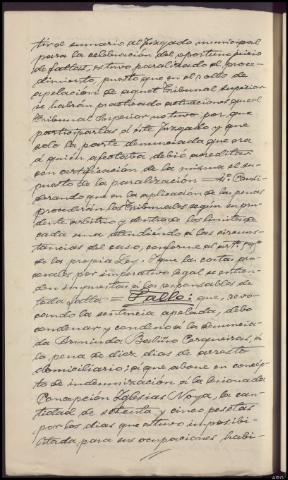 tir el sumario al Juzgado municipal
para la celebración del oportuno juicio
de faltas, estuvo paralizado el proce-
dimiento, puesto que en el rollo de
apelación de aquel Tribunal superior
se habrán practicado actuaciones que el
Tribunal Superior no tuvo por que
participarlas al este Juzgado y que
solo la parte denunciada que era
á quien afectaba, debió acreditar
con certificación de la misma el su-
puesto de la paralización = 4º Consi-
derando que en la aplicación de las penas
procederán los Tribunales según su pru-
dente arbitrio y dentro de los limites de
cada una atendiendo á las circuns-
tancias del caso, conforme al artº
de la propia Ley. Y que las costas pro-
cesales por imperativo legal se entien-
den impuestas á los responsables de
toda falta = Fallo: que, revo-
cando la sentencia apelada, debo
condenar y condeno á la denuncia-
da Erminda Cerqueiras, á
la pena de diez dias de arresto
domiciliario; á que abone en concep-
to de indemnización á la lesionada
Concepción Iglesias Noya, la can-
tidad de setenta y cinco pesetas
por los dias que estuvo imposibi-
litada para sus ocupaciones habi-